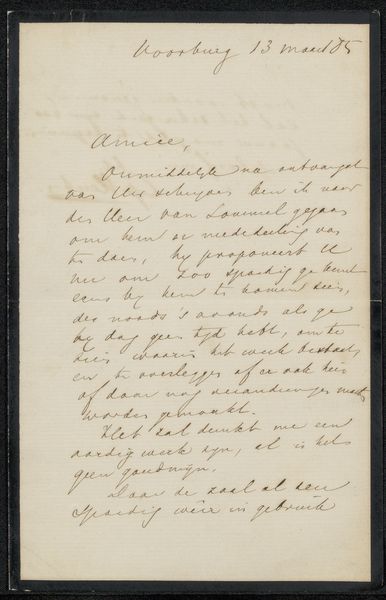 Voorburg 13 maart 85
Amice,
Onmiddelijk na ontvangst
van Uw schrijven ben ik naar
den Heer van Lommel gegaan
om hem er mededeeling van
te doen, hy proponeert U
nu om zoo spoedig ge kunt
eens by hem te komen zien,
des noods 's avonds als ge
by dag geen tyd hebt, om te
zien waarin het werk bestaat,
en te overleggen of er ook hier
of daar nog veranderingen moeten
worden gemaakt.
Het zal denkt me een
aardig werk zyn, al is het
geen goudmyn.
Daar de zaal al zeer
spoedig weer in gebruik